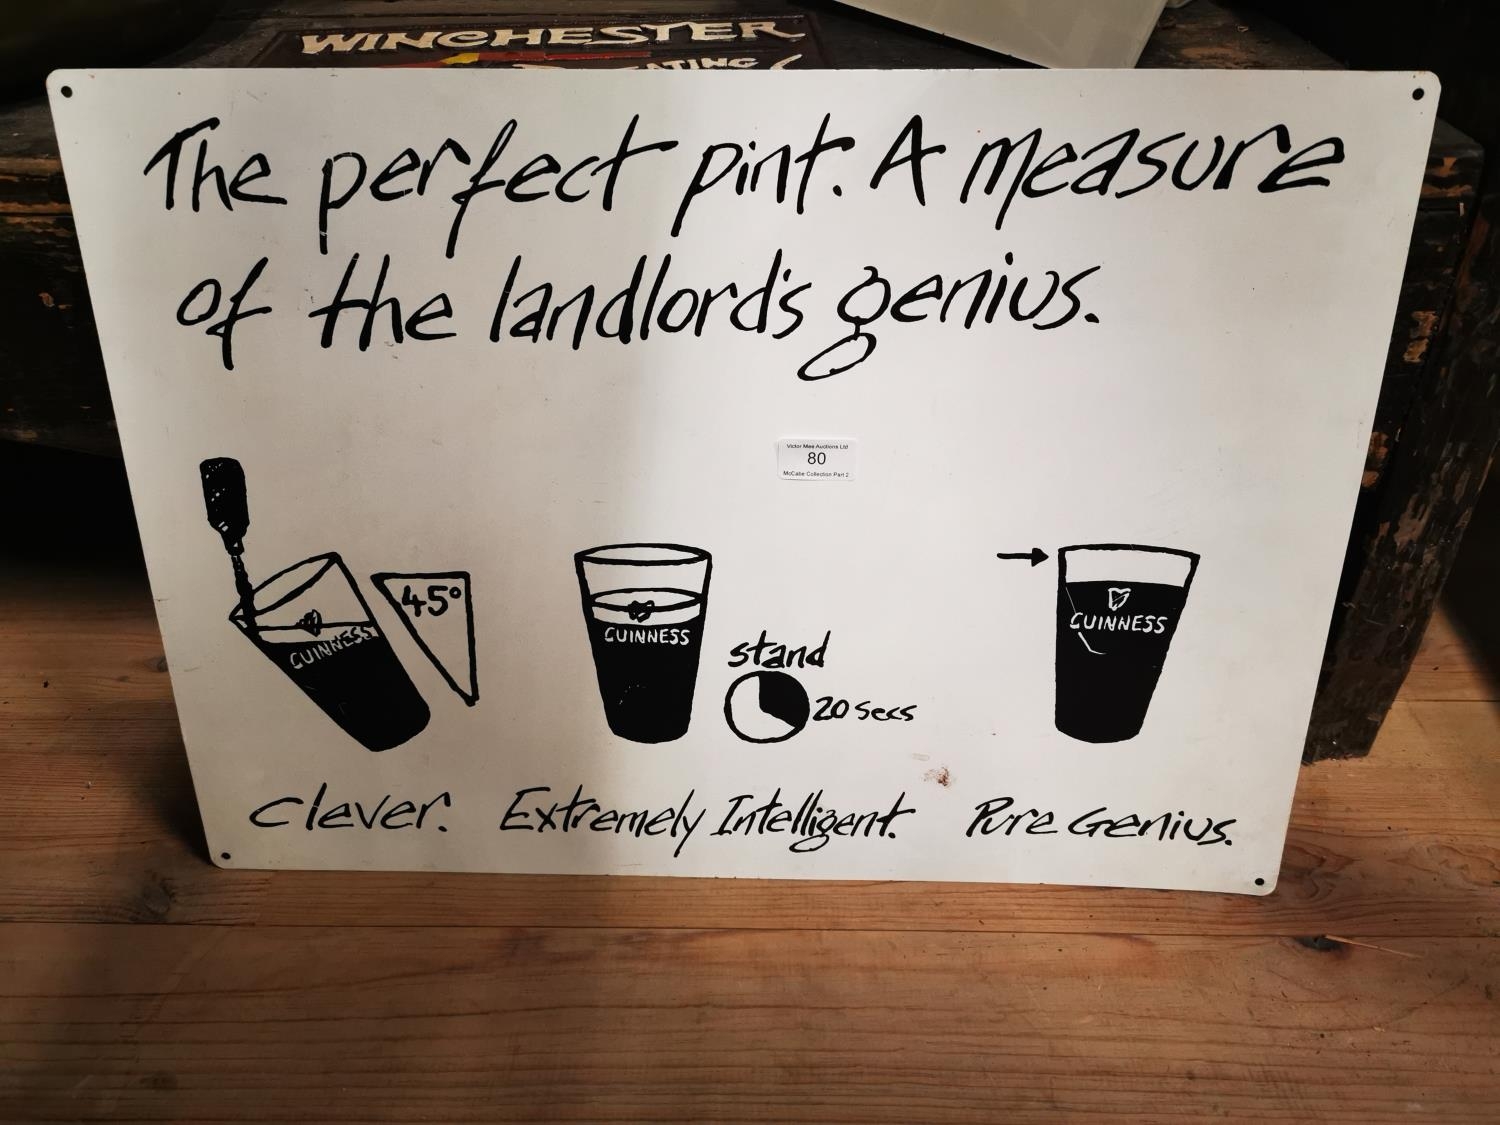 WINCHESTER
The perfect pint. A measure
of the landlord's genius.
Victor Mee Auctions Ltd
80
McCabe Collection Part 2
45°
GUINNESS
GUINNESS
stand
20 secs
GUINNESS
Clever. Extremely Intelligent. Pure Genius.